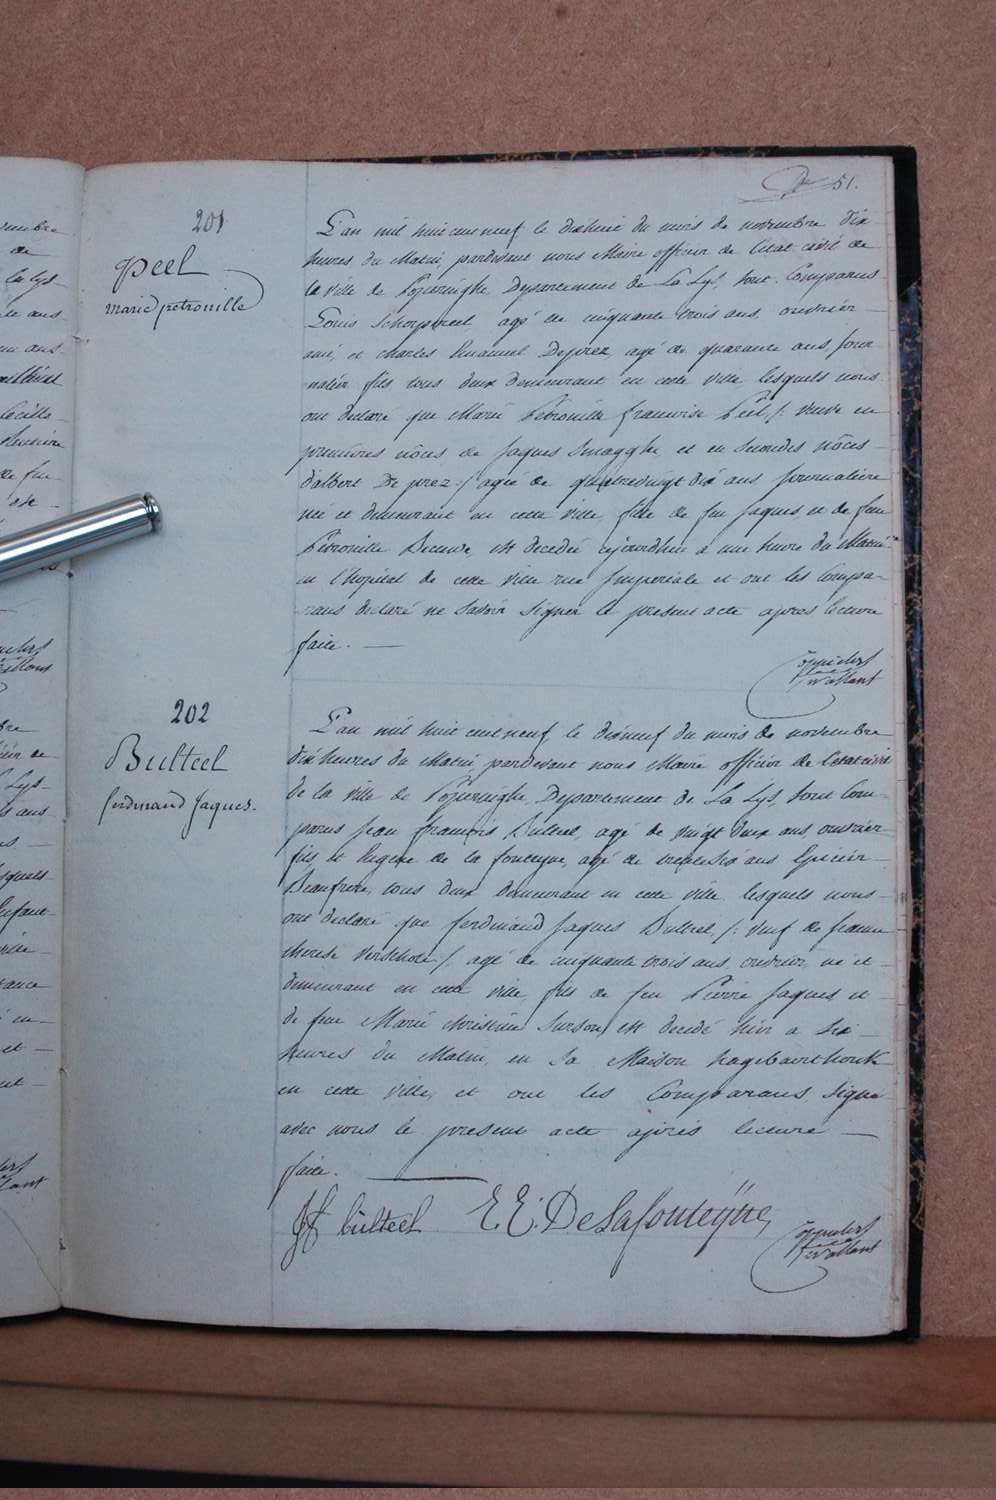 51.
201
Peel
marie petronille
L'an mil huit cent neuf le dixhuit du mois de novembre dix
heures du Matin pardevant nous Maire officier de l'état civil de
la ville de Poperinghe, Departement de La Lys, sont Comparus
Louis Schorpereel, agé de cinquante trois ans, ouvrier
ami, et charles Emanuel Deprez, agé de quarante ans, jour
nalier fils tous deux demeurant en cette ville, lesquels nous
ont declaré que Marie Petronille francoise Peel /: veuve en
premieres nôces de Jaques Smagghe et en secondes nôces
d'albert Deprez :/ agée de quatrevingt dix ans journaliere
née et demeurant en cette ville, fille de feu Jaques et de feue
Petronille Decuwe, est decedée aujourdhui a une heure du Matin
en l'hopital de cette ville rue Imperiale et ont les Compa-
rans declaré ne savoir signer le present acte apres lecture
faite. —
202
Bulteel
ferdinand Jaques.
L'an mil huit cent neuf, le dixneuf du mois de novembre
dix heures du Matin, pardevant nous Maire officier de l'état civil
de la ville de Poperinghe, Departement de La Lys, sont Com-
parus Jean francois Bulteel, agé de vingt deux ans ouvrier
fils et Eugene de la fonteyne, agé de trente six ans Epicier
Beaufrere, tous deux demeurant en cette ville, lesquels nous
ont declaré que ferdinand Jaques Bulteel /: veuf de francoise
therese Verschote :/ agé de cinquante trois ans, ouvrier, né et
demeurant en cette ville, fils de feu Pierre Jaques et
de feue Marie christine Surson, est decedé hier a six
heures du Matin, en sa Maison hagebaerthouk
en cette ville, et ont les Comparans signé
avec nous le present acte après lecture —
faite. —
JF bulteel E E. De Lafonteÿne